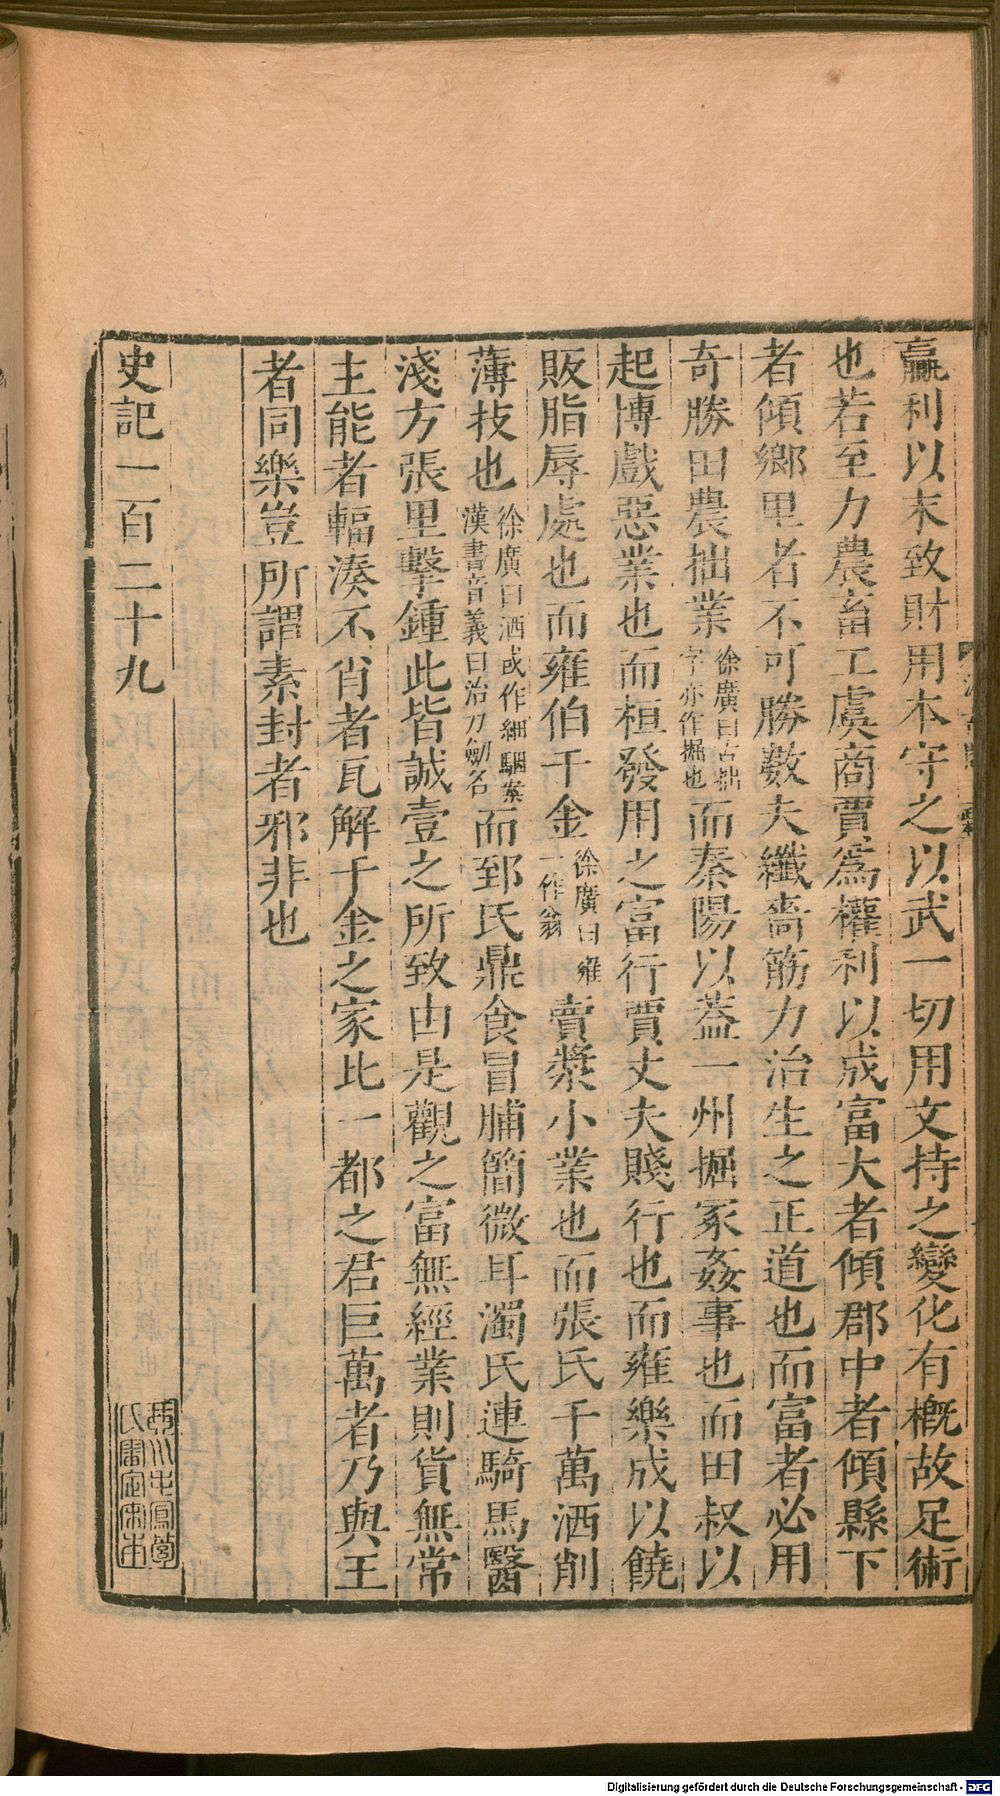 贏利以末致財用本守之以武一切用文持之變化有概故足術
也若至力農畜工虞商賈爲權利以成富大者傾郡中者傾縣下
者傾鄉里者不可勝數夫纖嗇筋力治生之正道也而富者必用
奇勝田農拙業
徐廣曰古拙
字亦作掘也
而秦陽以蓋一州掘冢姦事也而田叔以
起博戲惡業也而桓發用之富行賈丈夫賤行也而雍樂成以饒
販脂辱處也而雍伯千金
徐廣曰雍
一作翁
賣漿小業也而張氏千萬洒削
薄技也
徐廣曰洒或作細駰案
漢書音義曰治刀劒名
而郅氏鼎食冒脯簡微耳濁氏連騎馬醫
淺方張里擊鍾此皆誠壹之所致由是觀之富無經業則貨無常
主能者輻湊不肖者瓦解千金之家比一都之君巨萬者乃與王
者同樂豈所謂素封者邪非也
史記一百二十九
Digitalisierung gefördert durch die Deutsche Forschungsgemeinschaft - DFG